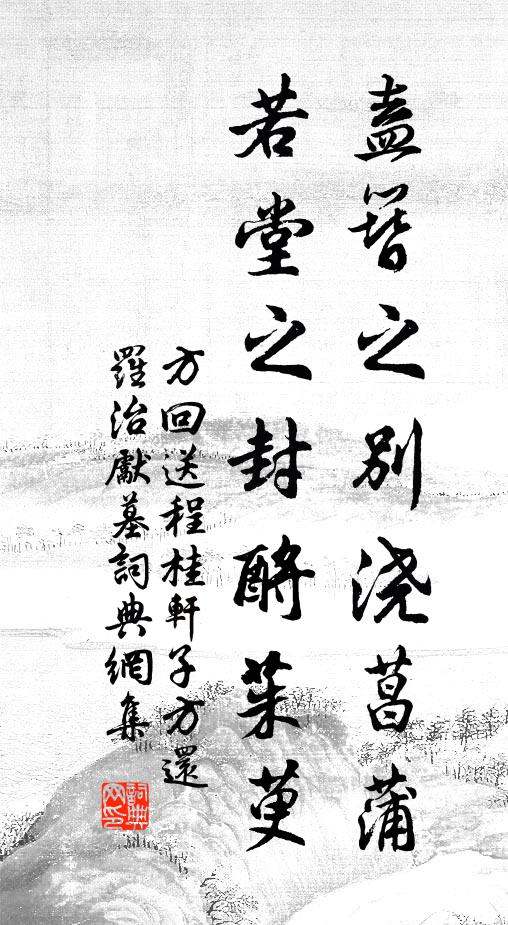 盍簪之別浇菖蒲
若堂之封酹茱萸
方回送程桂軒子方還
羅治獻墓詞典網集
詞典网印